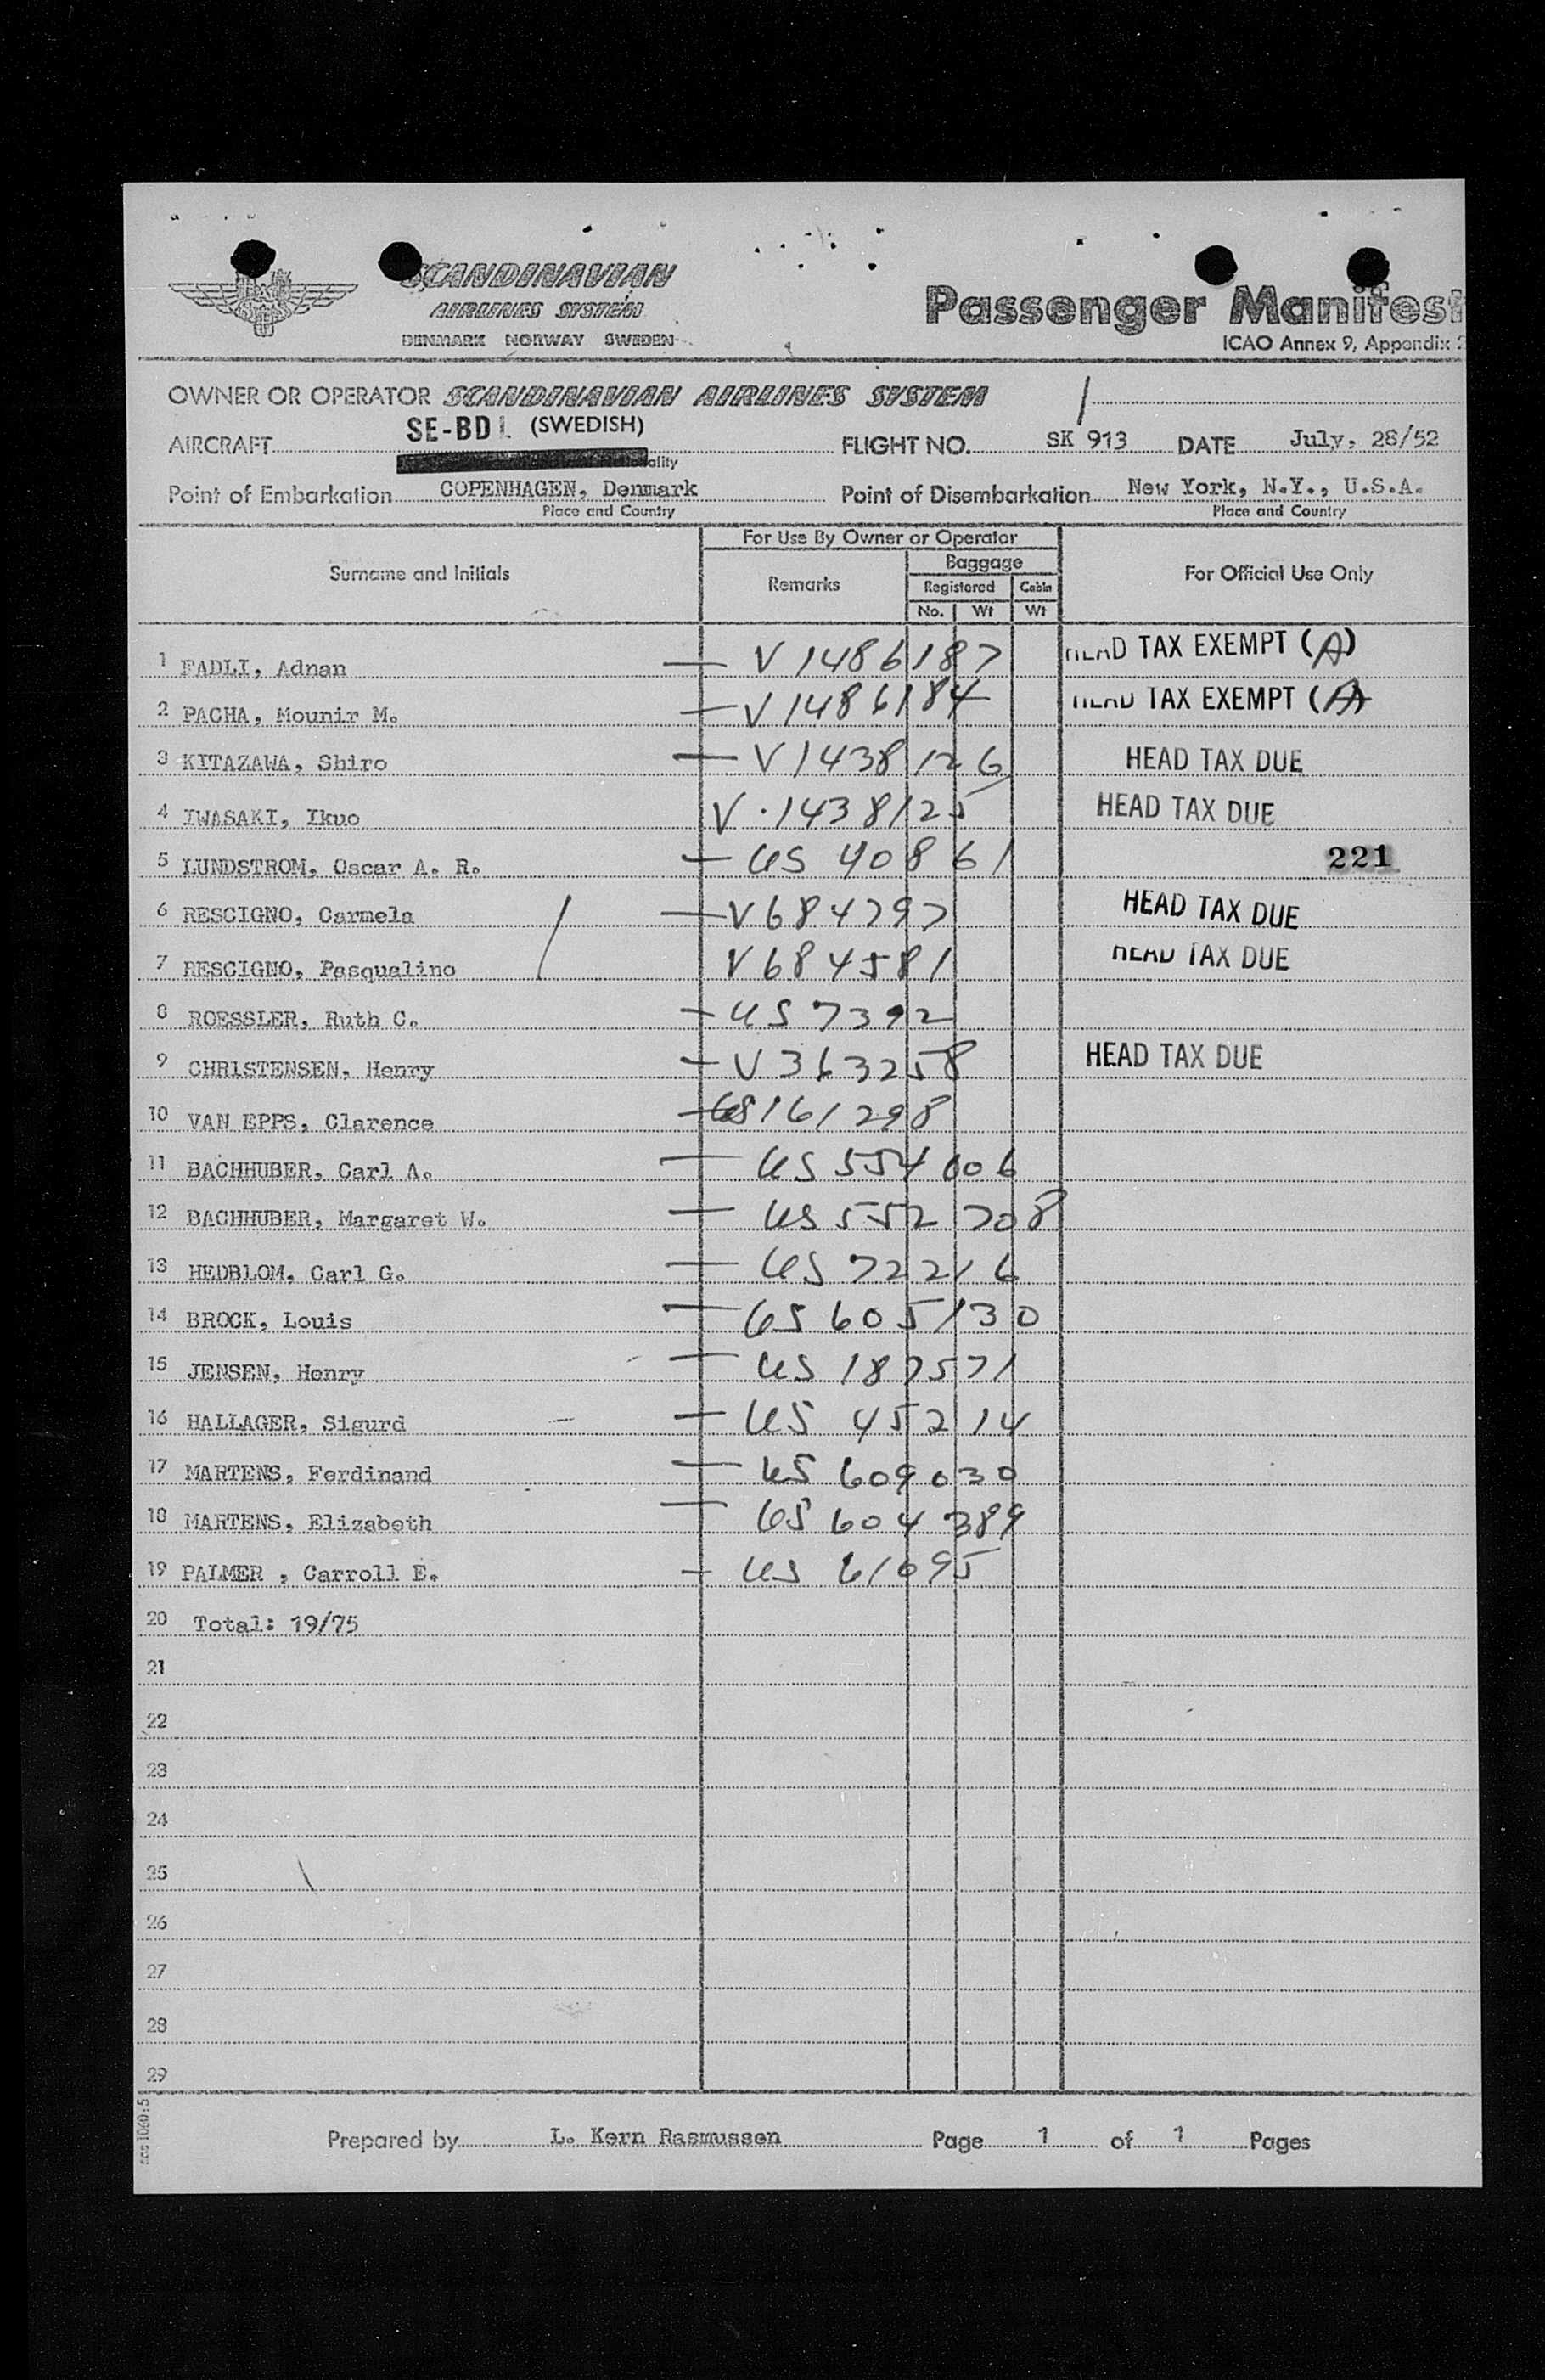 SCANDINAVIAN
AIRLINES SYSTEM
DENMARK NORWAY SWEDEN
Passenger Manifest
ICAO Annex 9, Appendix
OWNER OR OPERATOR SCANDINAVIAN AIRLINES SYSTEM
AIRCRAFT SE-BD (SWEDISH) FLIGHT NO. SK 913 DATE July, 28/52
Point of Embarkation COPENHAGEN, Denmark Point of Disembarkation New York, N.Y., U.S.A.
Place and Country Place and Country
For Use By Owner or Operator
Surname and Initials Remarks Baggage For Official Use Only
Registered Cabin
No. Wt Wt
1 FADLI, Adnan V 1486187 HEAD TAX EXEMPT (A)
2 PACHA, Mounir M. V 1486184 HEAD TAX EXEMPT (A)
3 KITAZAWA, Shiro V 1438126 HEAD TAX DUE
4 IWASAKI, Ikuo V. 1438125 HEAD TAX DUE
5 LUNDSTROM, Oscar A. R. US 40861 221
6 RESCIGNO, Carmela V684797 HEAD TAX DUE
7 RESCIGNO, Pasqualino V684581 HEAD TAX DUE
8 ROESSLER, Ruth C. US 7392
9 CHRISTENSEN, Henry V 363258 HEAD TAX DUE
10 VAN EPPS, Clarence US 161298
11 BACHHUBER, Carl A. US 554006
12 BACHHUBER, Margaret W. US 552708
13 HEDBLOM, Carl G. US 72216
14 BROCK, Louis US 605130
15 JENSEN, Henry US 187571
16 HALLAGER, Sigurd US 45214
17 MARTENS, Ferdinand US 609030
18 MARTENS, Elizabeth US 604389
19 PALMER , Carroll E. US 61095
20 Total: 19/75
21
22
23
24
25
26
27
28
29
Prepared by L. Kern Rasmussen Page 1 of 1 Pages